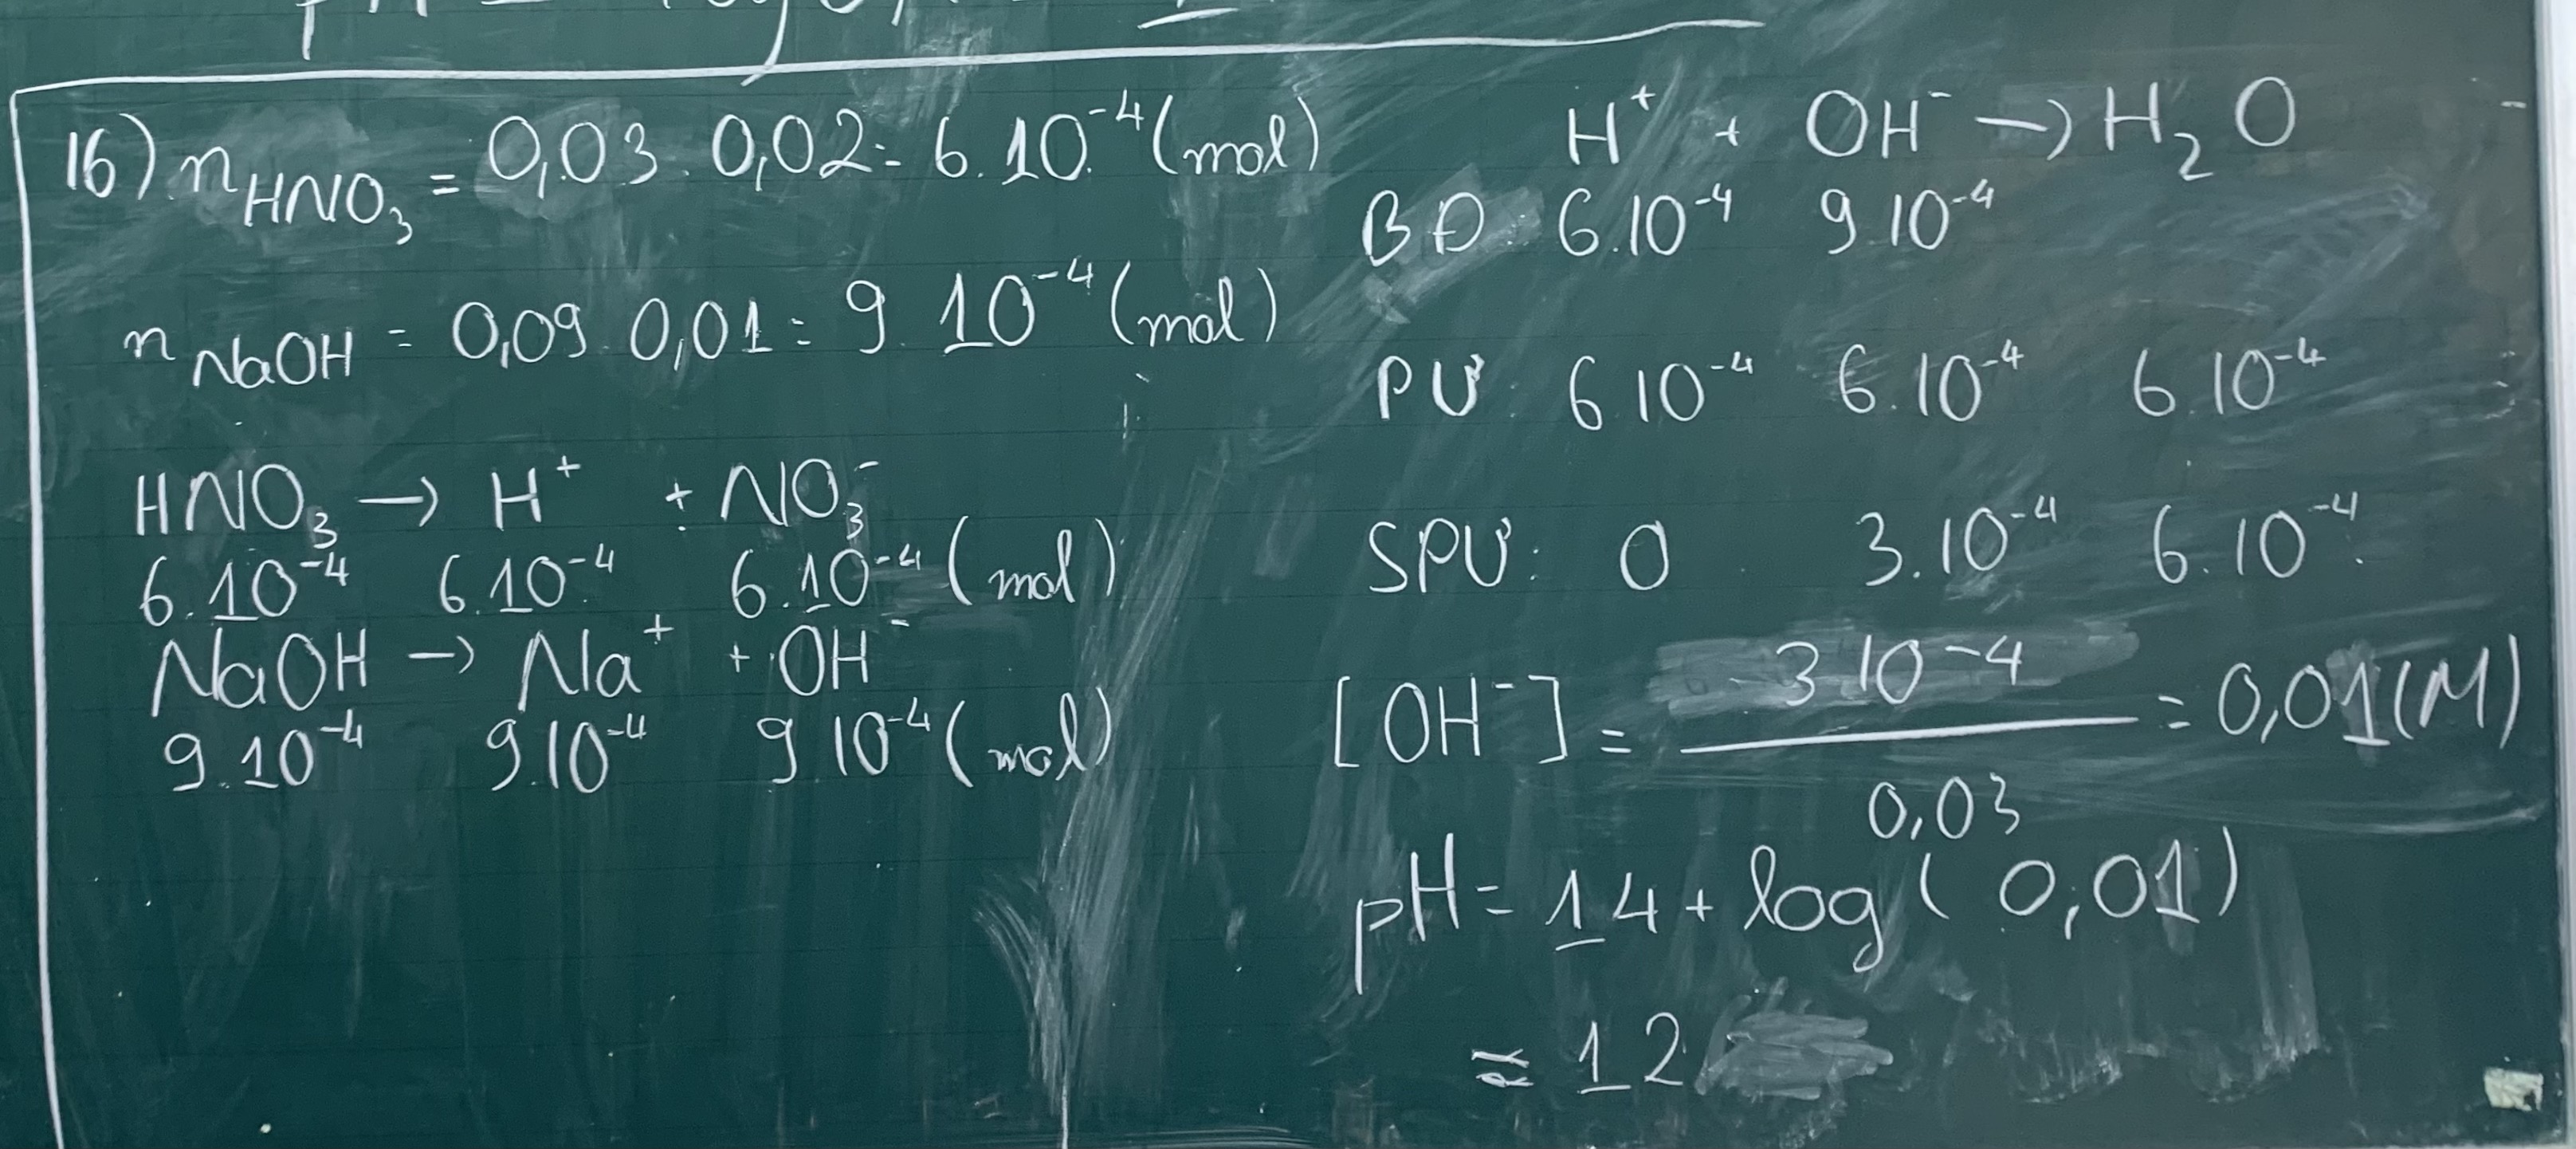 16) n HNO₃ = 0,03 . 0,02 = 6.10⁻⁴ (mol)
n NaOH = 0,09 0,01 = 9. 10⁻⁴ (mol)
HNO₃ → H⁺ + NO₃⁻
6.10⁻⁴ 6.10⁻⁴ 6.10⁻⁴ (mol)
NaOH → Na⁺ + OH⁻
9.10⁻⁴ 9.10⁻⁴ 9 10⁻⁴ (mol)
H⁺ + OH⁻ → H₂O
BĐ: 6.10⁻⁴ 9 10⁻⁴
PƯ: 6 10⁻⁴ 6.10⁻⁴ 6.10⁻⁴
SPƯ: 0 3.10⁻⁴ 6.10⁻⁴
[OH⁻] = 3 10⁻⁴ / 0,03 = 0,01 (M)
pH = 14 + log ( 0,01 )
≈ 12